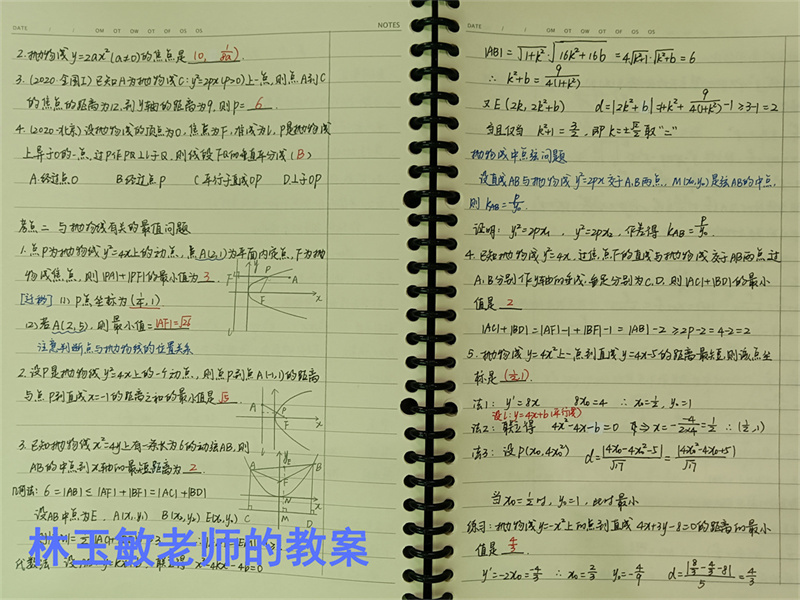 DATE / / OM OT OW OT OF OS OS NOTES
2. 抛物线 y=2ax²(a≠0)的焦点是 (0, 1/8a).
3. (2020·全国Ⅰ)已知A为抛物线C: y²=2px(p>0)上一点,则点A到C
的焦点的距离为12,到y轴的距离为9,则P= 6
4. (2020·北京)设抛物线的顶点为O,焦点为F,准线为l,P是抛物线
上异于O的一点,过P作PQ⊥l于Q,则线段FQ的垂直平分线(B)
A.经过点O B.经过点P C.平行于直线OP D.⊥于OP
考点二 与抛物线有关的最值问题
1. 点P为抛物线y²=4x上的动点,点A(2,1)为平面内定点,F为抛
物线焦点,则|PA|+|PF|的最小值为 3
(1) P点坐标为 (1/4, 1)
(2)若A(2,5),则最小值= |AF|=√26
注意判断点与抛物线的位置关系
2. 设P是抛物线y²=4x上的一个动点,则点P到点A(-1,1)的距离
与点P到直线x=-1的距离之和的最小值是 √5
3. 已知抛物线x²=4y上有一条长为6的动弦AB,则
AB的中点到x轴的最短距离为 2
几何法: 6=|AB|≤|AF|+|BF|=|AC|+|BD|
设AB中点为E A(x₁,y₁) B(x₂,y₂) E(x₀,y₀)
林玉敏老师的教案
代数法: x²-4kx-4b=0
DATE / / OM OT OW OT OF OS OS
|AB|=√1+k²·√16k²+16b =4√k²+1·√k²+b=6
∴ k²+b= 9/4(1+k²)
又E(2k, 2k²+b) d=|2k²+b|=k²+ 9/4(1+k²) ≥3-1=2
当且仅当 k²+1=3/2, 即k=±√2/2 取"="
抛物线中点弦问题
设直线AB与抛物线y²=2px交于A,B两点, M(x₀,y₀)是弦AB的中点,
则 kAB= P/y₀
证明: y₁²=2px₁, y₂²=2px₂, 作差得 kAB= P/y₀.
4. 已知抛物线y²=4x,过焦点F的直线与抛物线交于AB两点,过
A,B分别作y轴的垂线,垂足分别为C,D,则|AC|+|BD|的最小
值是 2
|AC|+|BD|=|AF|-1+|BF|-1=|AB|-2≥2P-2=4-2=2
5. 抛物线y=4x²上一点到直线y=4x-5的距离最短,则该点坐
标是 (1/2,1).
法1: y'=8x 8x₀=4 ∴x₀=1/2, y₀=1
设l: y=4x+b(平行线)
法2: 联立得 4x²-4x-b=0 x=- -4/2×4 =1/2 ∴(1/2,1)
法3: 设P(x₀,4x₀²) d= |4x₀-4x₀²-5|/√17 = |4x₀²-4x₀+5|/√17
当x₀=1/2时, y₀=1, 此时最小
练习: 抛物线y=-x²上的点到直线4x+3y-8=0的距离的最小
值是 4/3
y'=-2x₀=-4/3 ∴x₀=2/3 y₀=-4/9 d= |8/3-4/3-8|/5 =4/3